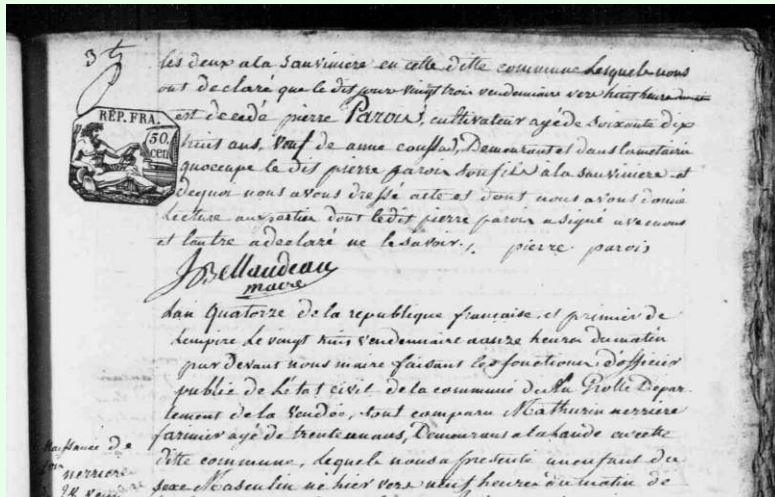 3 t
les deux a la Sauviniere en cette ditte commune Lesquels nous
ont declaré que le dit jour vingt trois vendemiaire vers huit heure
RÉP. FRA.
50.
cen
est decedé pierre Parois, cultivateur agé de soixante dix
huit ans, veuf de anne Demeurant et dans la metairie
quoccupe le dit pierre parois son fils a la sauviniere et
dequoi nous avons dressé acte et dont nous avons donné
Lecture dont ledit pierre parois a signé avec nous
et lautre a declaré ne le savoir. pierre parois
maire
Lan Quatorze de la republique française, et premier de
Lempire Le vingt huit vendemiaire a onze heures du matin
par devant nous maire faisant les fonctions d'officier
public de Létat civil de la commune de Depar
tement de la vendée, sont comparu Mathurin nerriere
farmier agé de trente un ans, Demeurans a la en cette
ditte commune, Lequel nous a presenté un enfant du
sexe Masculin ne hier vers neuf heures du matin de
Naissance de
nerriere